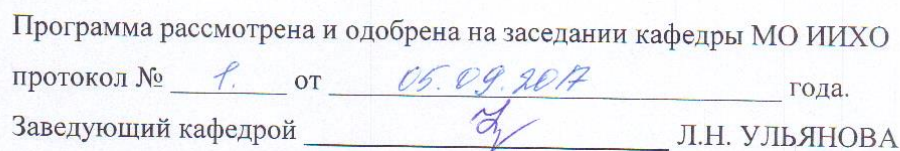 Программа рассмотрена и одобрена на заседании кафедры МО ИИХО
протокол № 1. от 05.09.2017 года.
Заведующий кафедрой Л.Н. УЛЬЯНОВА